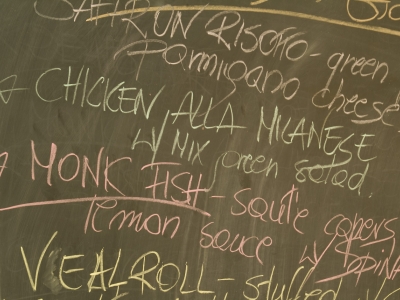 SAFFRON RISOTTO - green
Parmigano cheese
CHICKEN ALLA MILANESE
W/ MIX green salad.
MONK FISH - saute capers
lemon sauce W/ SPINA
VEAL ROLL - stuffed